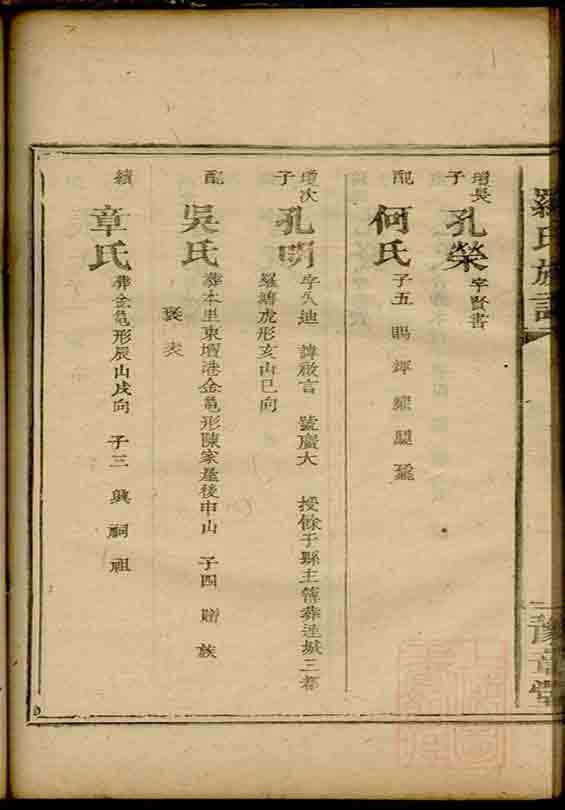 羅氏族譜
豫章堂
增長子 孔榮 字賢書
配 何氏 子五 賜 輝
增次子 孔明 字久迪 諱啟言 號廣大 授餘干縣主簿葬連城三都
羅塘虎形亥山巳向
配 吳氏 葬本里東壇港金龜形陳家屋後申山 子四 贈 族
褒 表
續 章氏 葬金龜形辰山戌向 子三 興 嗣 祖